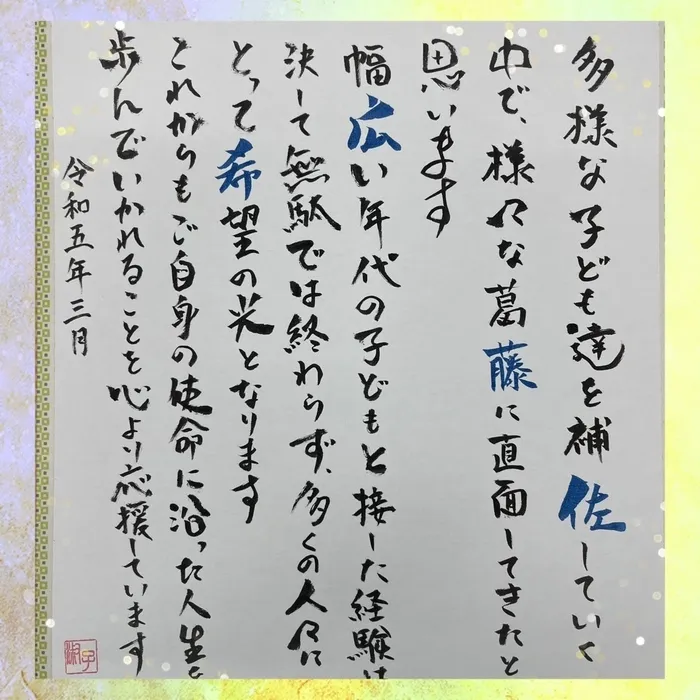 多様な子ども達を補佐していく
中で、様々な葛藤に直面してきたと
思います
幅広い年代の子どもと接した経験は
決して無駄では終わらず、多くの人々に
とって希望の光となります
これからもご自身の使命に沿った人生を
歩んでいかれることを心より応援しています
令和五年三月